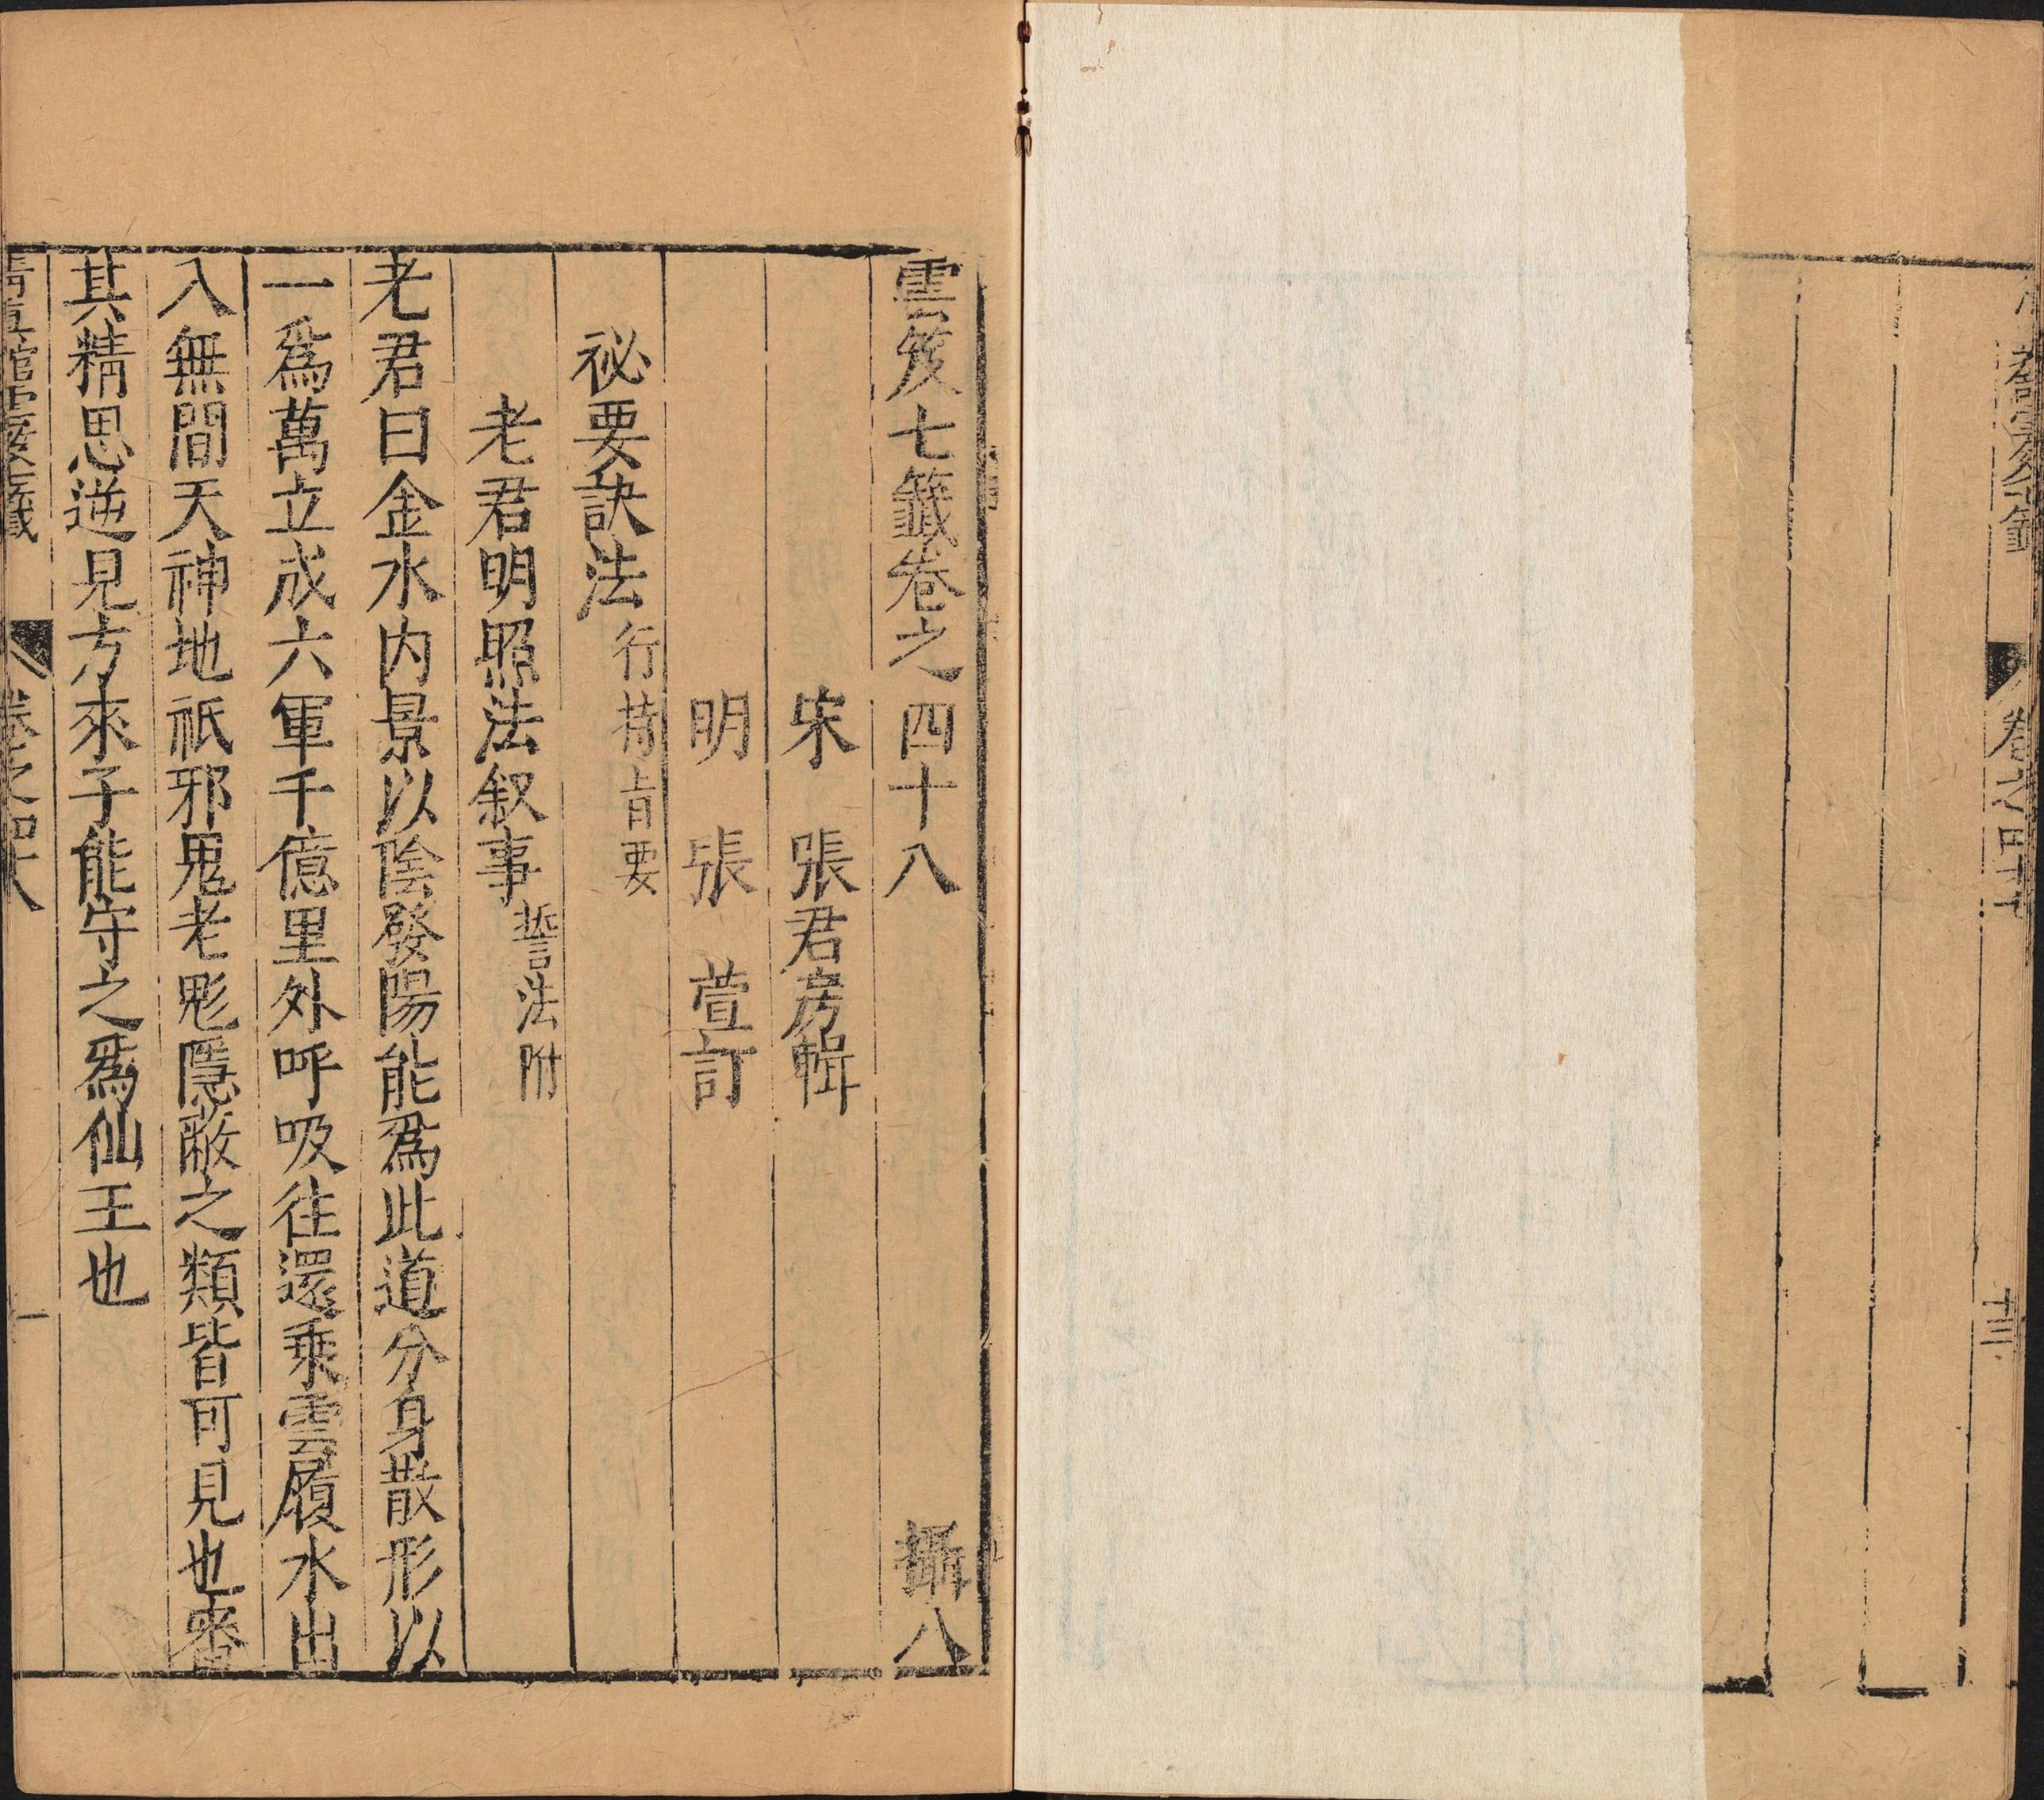 卷之四十七
十三
雲笈七籤卷之四十八　攝八
宋　張君房輯
明　張　萱訂
祕要訣法行持旨要
老君明照法叙事誓法附
老君曰金水内景以陰發陽能爲此道分身散形以
一爲萬立成六軍千億里外呼吸往還乘雲履水出
入無間天神地祇邪鬼老魅隱蔽之類皆可見也審
其精思逆見方來子能守之爲仙王也
清真館雲笈七籤　卷之四十八　一